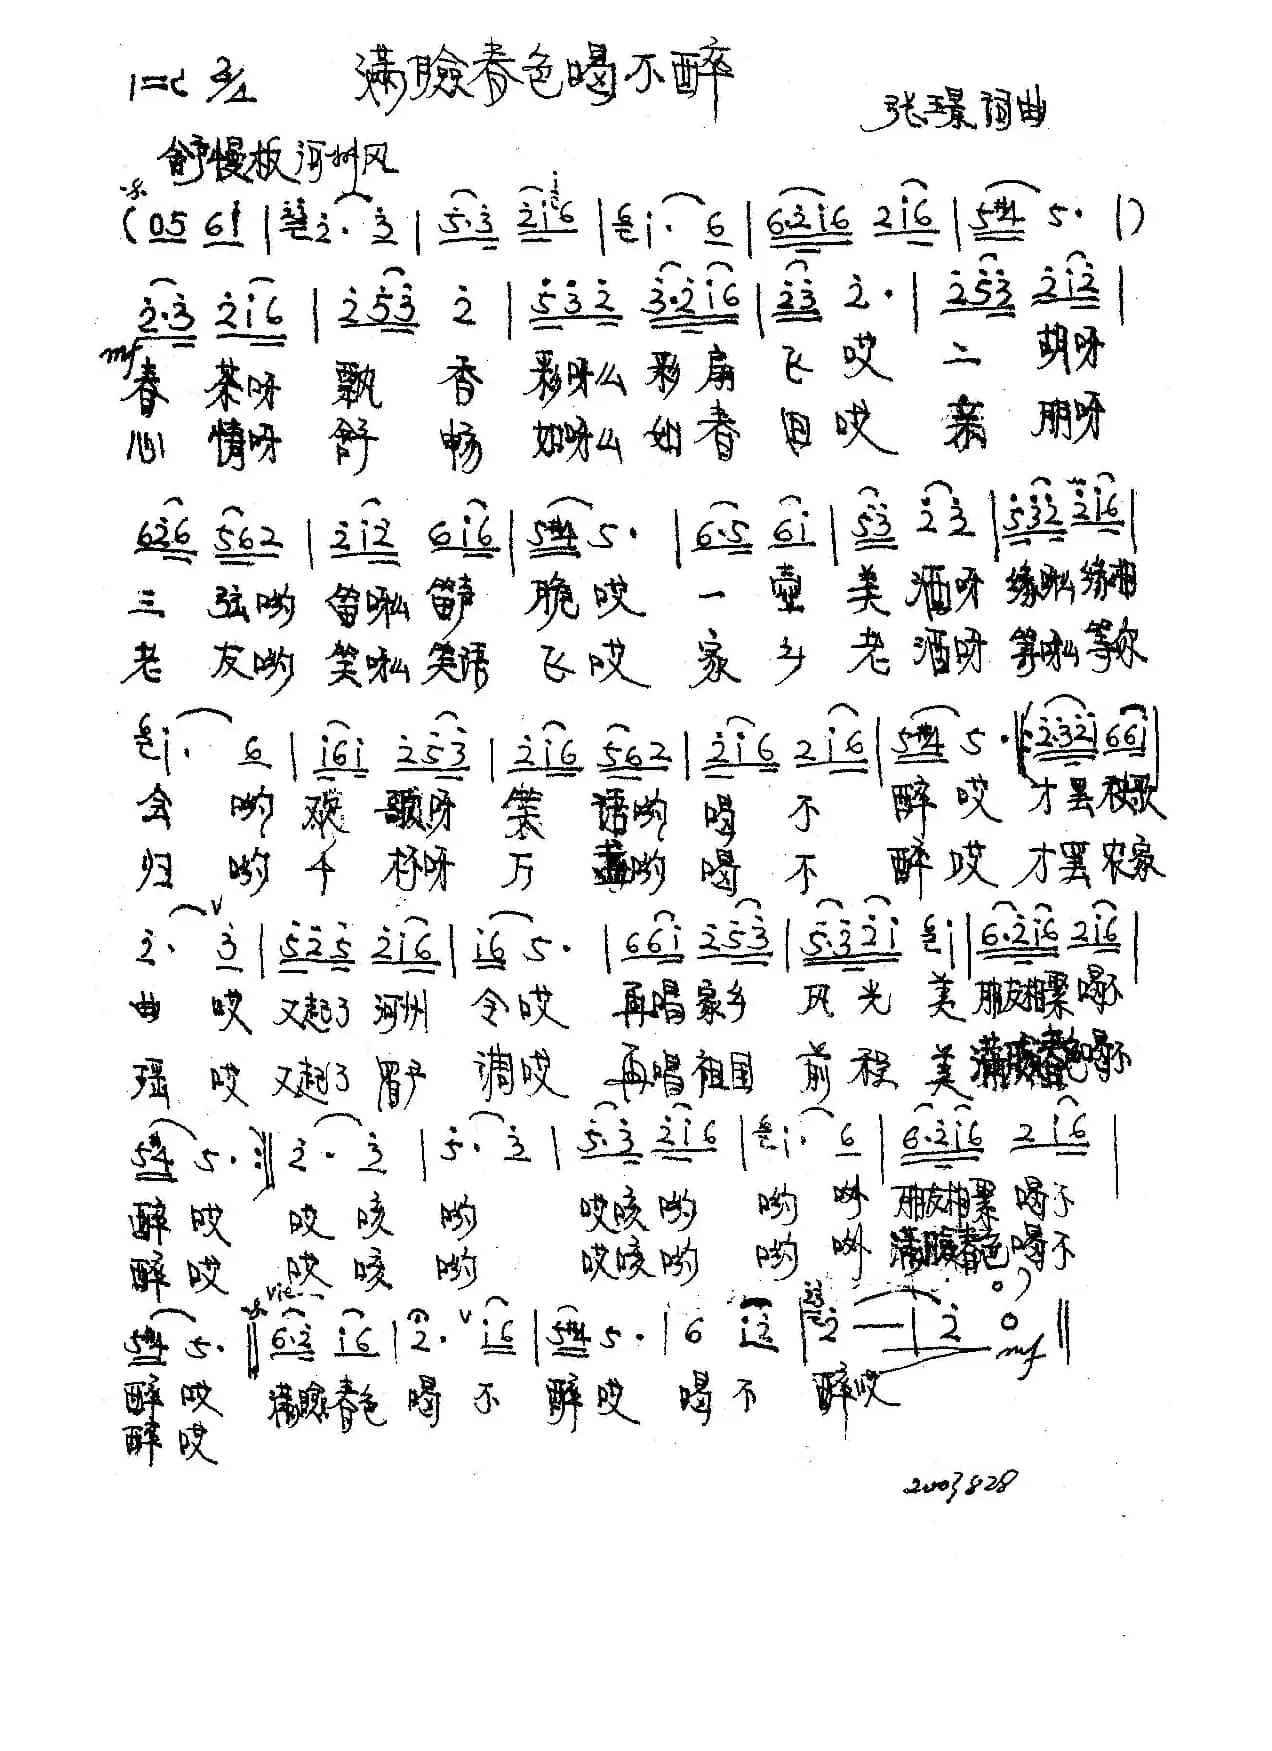 1=C 2/4 满脸春色喝不醉
张璟词曲
舒慢板 河州风
(05 6i | 2· 3 | 5·3 2i6 | i· 6 | 6·2i6 2i6 | 5#4 5· |)
2·3 2i6 | 253 2 | 532 3·2i6 | 23 2· | 253 2i2 |
mf
春 茶呀 飘 香 彩呀么 彩扇 飞 哎 二 胡呀
心 情呀 舒 畅 如呀么 如春 回 哎 亲 朋呀
626 562 | 2i2 6i6 | 5#4 5· | 6·5 6i | 53 23 | 532 2i6 |
三 弦哟 笛呀么 笛声 脆 哎 一 壶 美 酒呀 缘呀么缘相
老 友哟 笑呀么 笑语 飞 哎 家 乡 老 酒呀 等呀么等你
i· 6 | i6i 253 | 2i6 562 | 2i6 2i6 | 5#4 5· 2·32i 66i |
会 哟 欢 歌呀 笑 语哟 喝 不 醉 哎 才罢 秧歌
归 哟 千 杯呀 万 盏哟 喝 不 醉 哎 才罢 农家
2· 3 | 525 2i6 | i6 5· | 66i 253 | 5·32i i | 6·2i6 2i6 |
曲 哎 又起了 河州 令哎 再唱家乡 风 光 美 朋友相聚喝不
瑶 哎 又起了 调哎 再唱祖国 前 程 美 满脸春色喝不
5#4 5· :|| 2· 3 | 5· 3 | 5·3 2i6 | i· 6 | 6·2i6 2i6 |
醉 哎 哎 咳 哟 哎咳 哟 哟 朋友相聚 喝不
醉 哎 哎 咳 哟 哎咳 哟 哟 满脸春色 喝不
5#4 5· || 6·2 i6 | 2· v i6 | 5#4 5· | 6 i2 | 2 — | 2 0 ||
mf
醉 哎 满脸春色 喝 不 醉 哎 喝 不 醉哎
醉 哎
2003 8 28